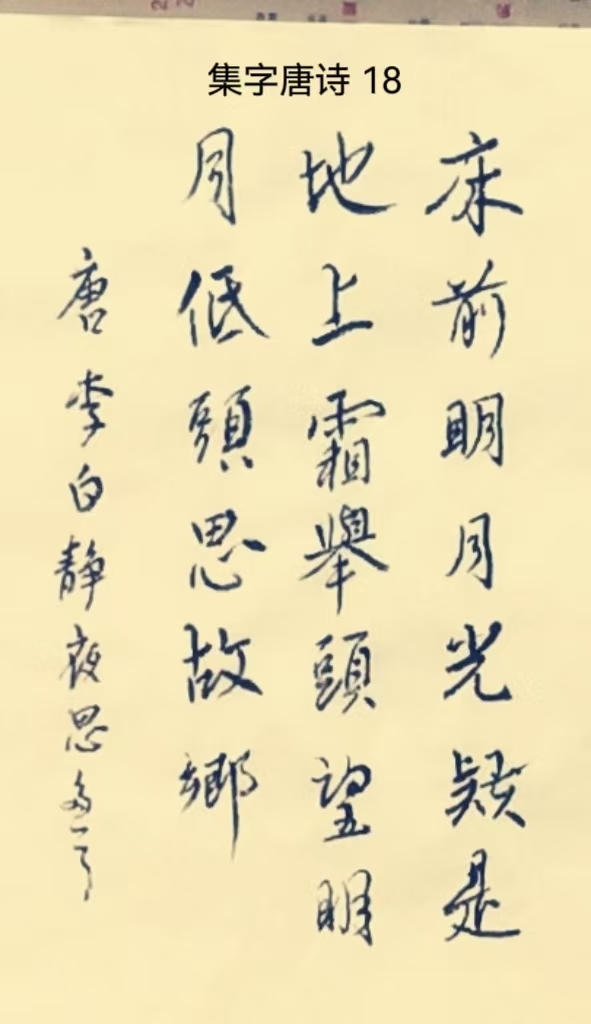 集字唐诗 18
床前明月光疑是
地上霜舉頭望明
月低頭思故鄉
唐李白靜夜思